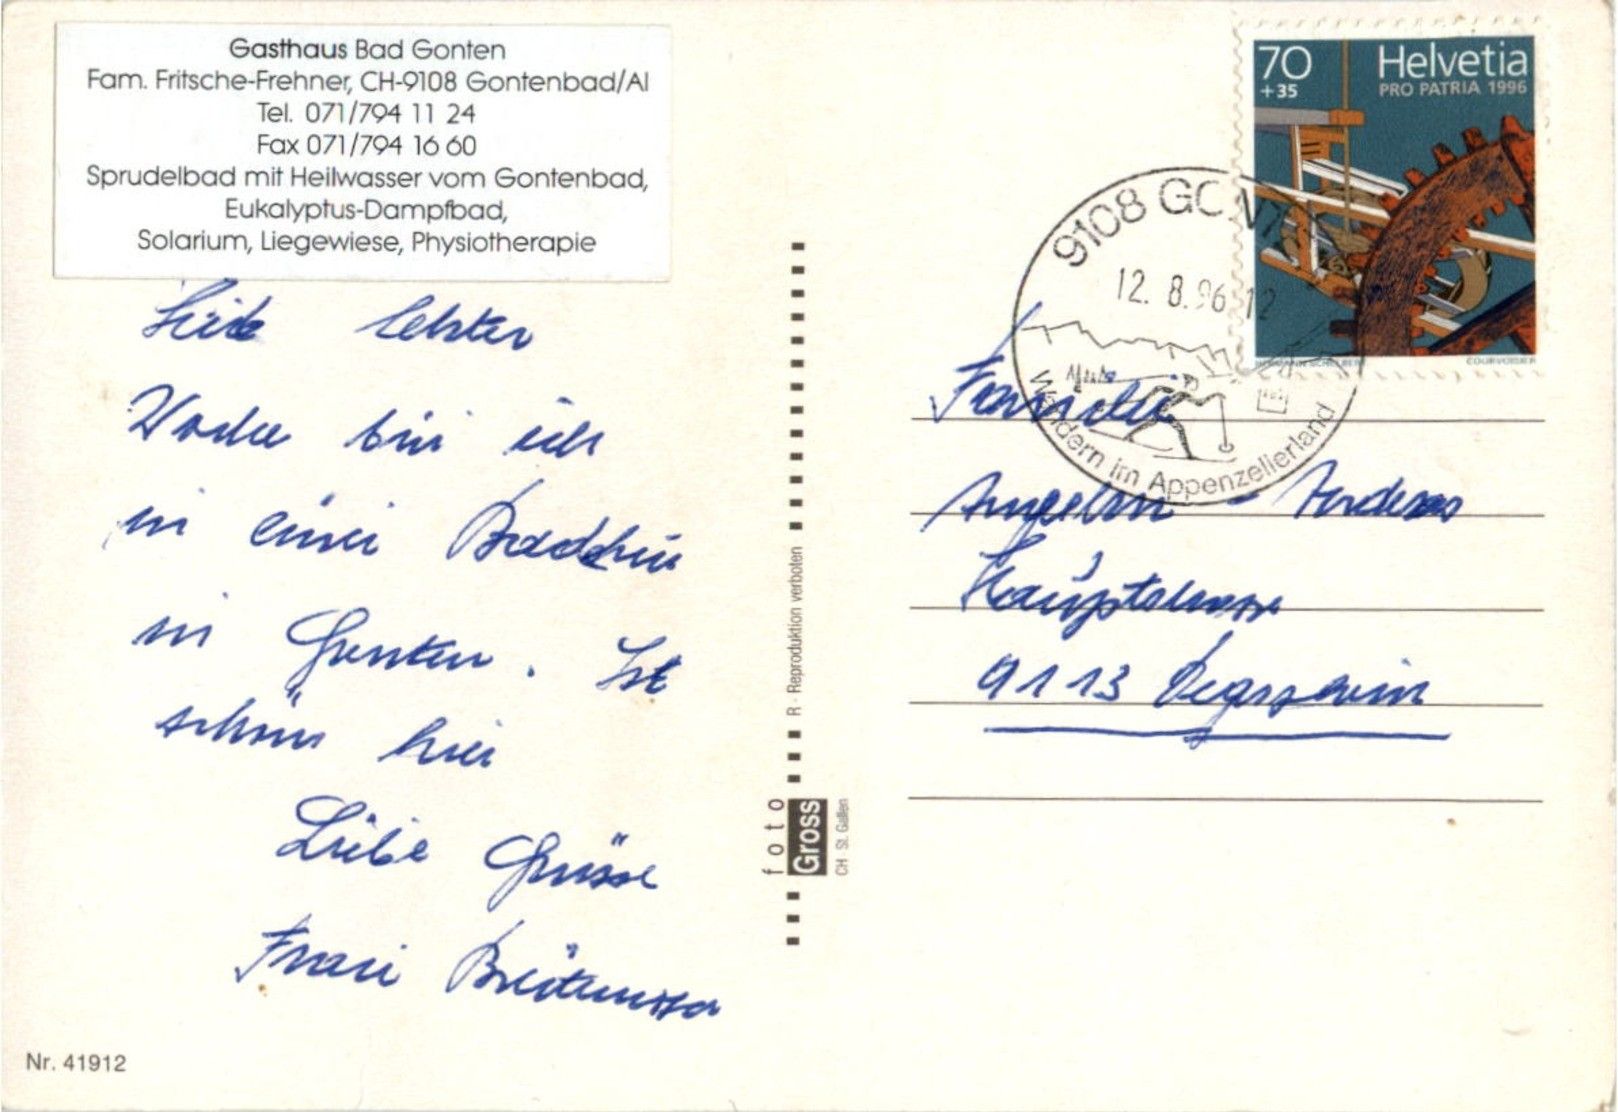 Gasthaus Bad Gonten
Fam. Fritsche-Frehner, CH-9108 Gontenbad/AI
Tel. 071/794 11 24
Fax 071/794 16 60
Sprudelbad mit Heilwasser vom Gontenbad,
Eukalyptus-Dampfbad,
Solarium, Liegewiese, Physiotherapie
Seit letzter
Woche bin ich
in einer
in Gonten. Ist
schön hier
Liebe Grüsse
Frau
Nr. 41912
R · Reproduktion verboten
foto
Gross
CH St. Gallen
70
+35
Helvetia
PRO PATRIA 1996
COURVOISIER
9108 GONT
12. 8.96 12
Wandern im Appenzellerland
Familie
Hauptstrasse
9113 Degersheim